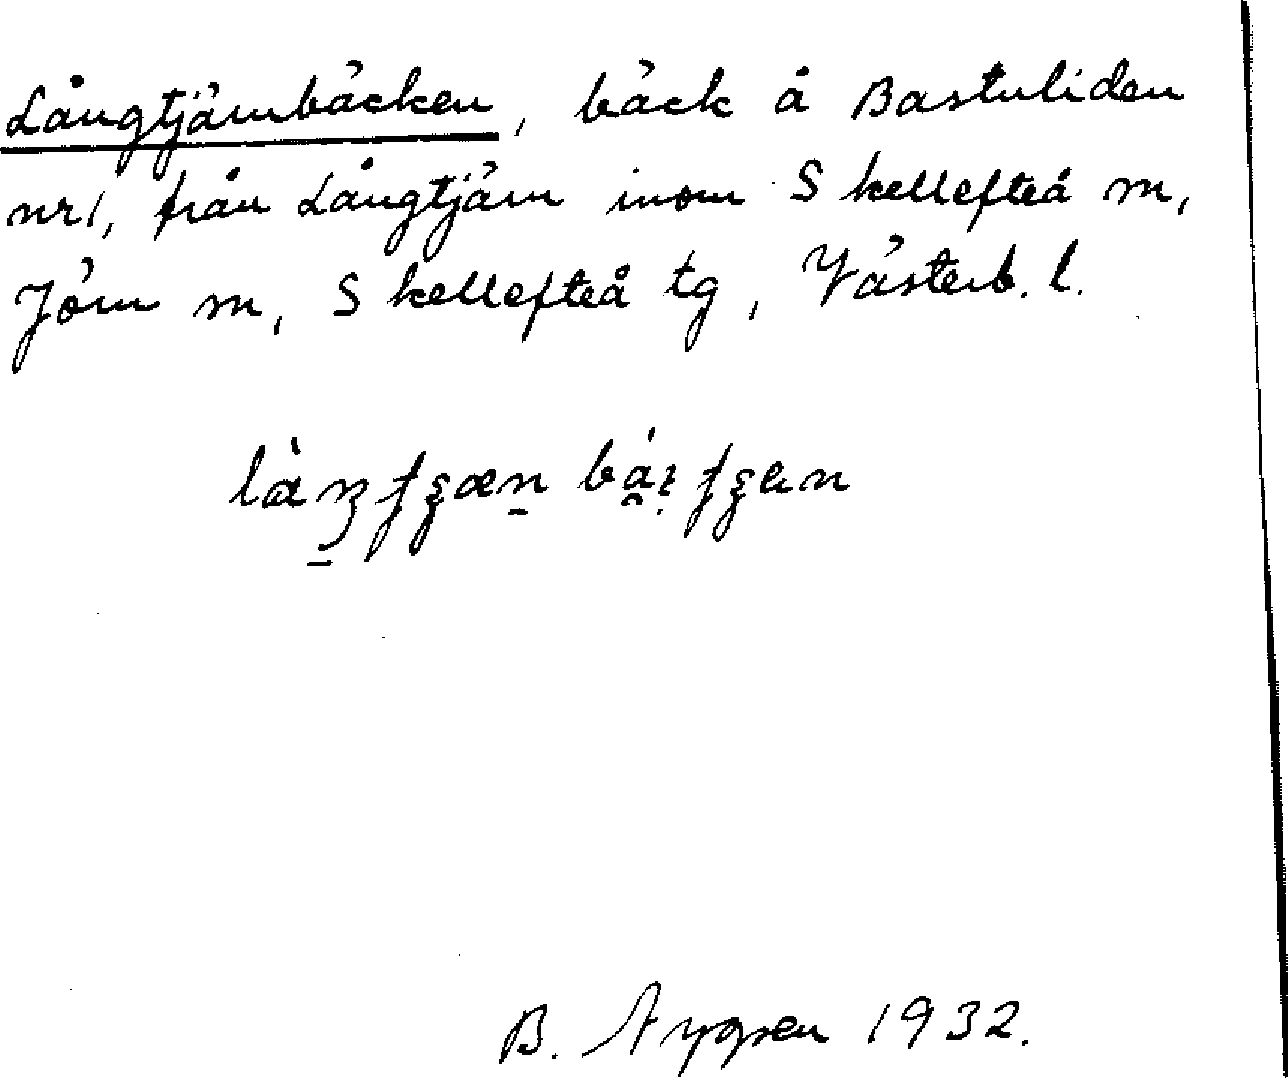 Långtjärnbäcken, bäck å Bastuliden
nr 1, från Långtjärn inom Skellefteå m,
Jörn m, Skellefteå tg, Västerb. l.
B. Nygren 1932.